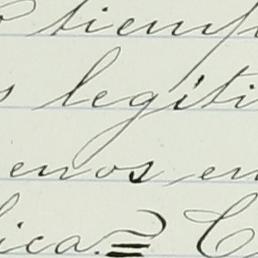 tiemp
s legiti
enos en
lica.= C